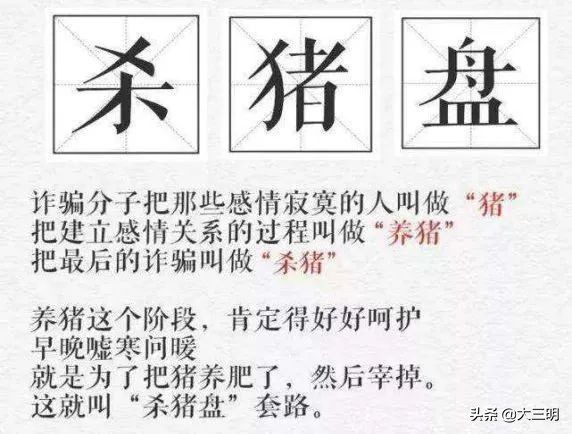 杀猪盘
诈骗分子把那些感情寂寞的人叫做“猪”
把建立感情关系的过程叫做“养猪”
把最后的诈骗叫做“杀猪”
养猪这个阶段，肯定得好好呵护
早晚嘘寒问暖
就是为了把猪养肥了，然后宰掉。
这就叫“杀猪盘”套路。
头条 @大三明